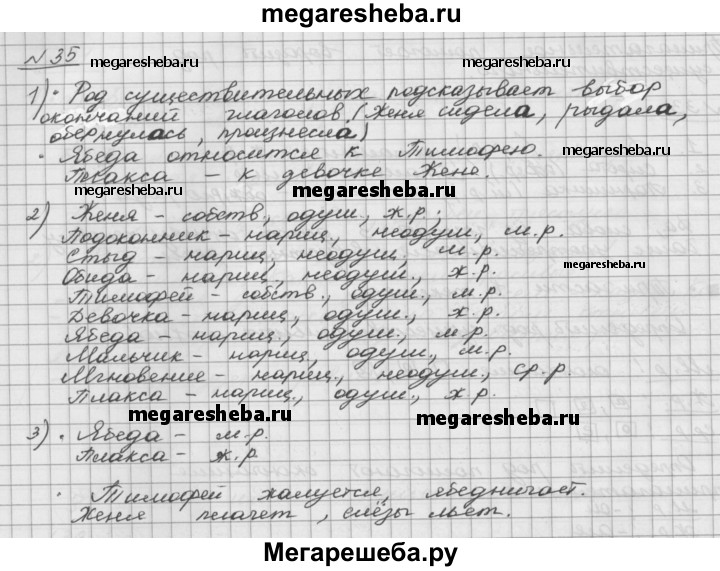 megaresheba.ru
№ 35
megaresheba.ru megaresheba.ru
1) • Род существительных подсказывает выбор
окончаний глаголов. (Женя сидела, рыдала,
обернулась, произнесла)
• Ябеда относится к Тимофею.
megaresheba.ru
Плакса – к девочке Жене.
megaresheba.ru
megaresheba.ru
2) Женя – собств., одуш., ж.р.;
Подоконник – нариц., неодуш., м.р.
Стыд – нариц., неодуш., м.р.
megaresheba.ru
Обида – нариц., неодуш., ж.р.
Тимофей – собств., одуш., м.р.
Девочка – нариц., одуш., ж.р.
Ябеда – нариц., одуш., м.р.
Мальчик – нариц., одуш., м.р.
Мгновение – нариц., неодуш., ср.р.
Плакса – нариц., одуш., ж.р.
megaresheba.ru megaresheba.ru
3) • Ябеда – м.р.
Плакса – ж.р.
• Тимофей жалуется, ябедничает.
Женя плачет, слёзы льёт.
Мегарешеба.ру